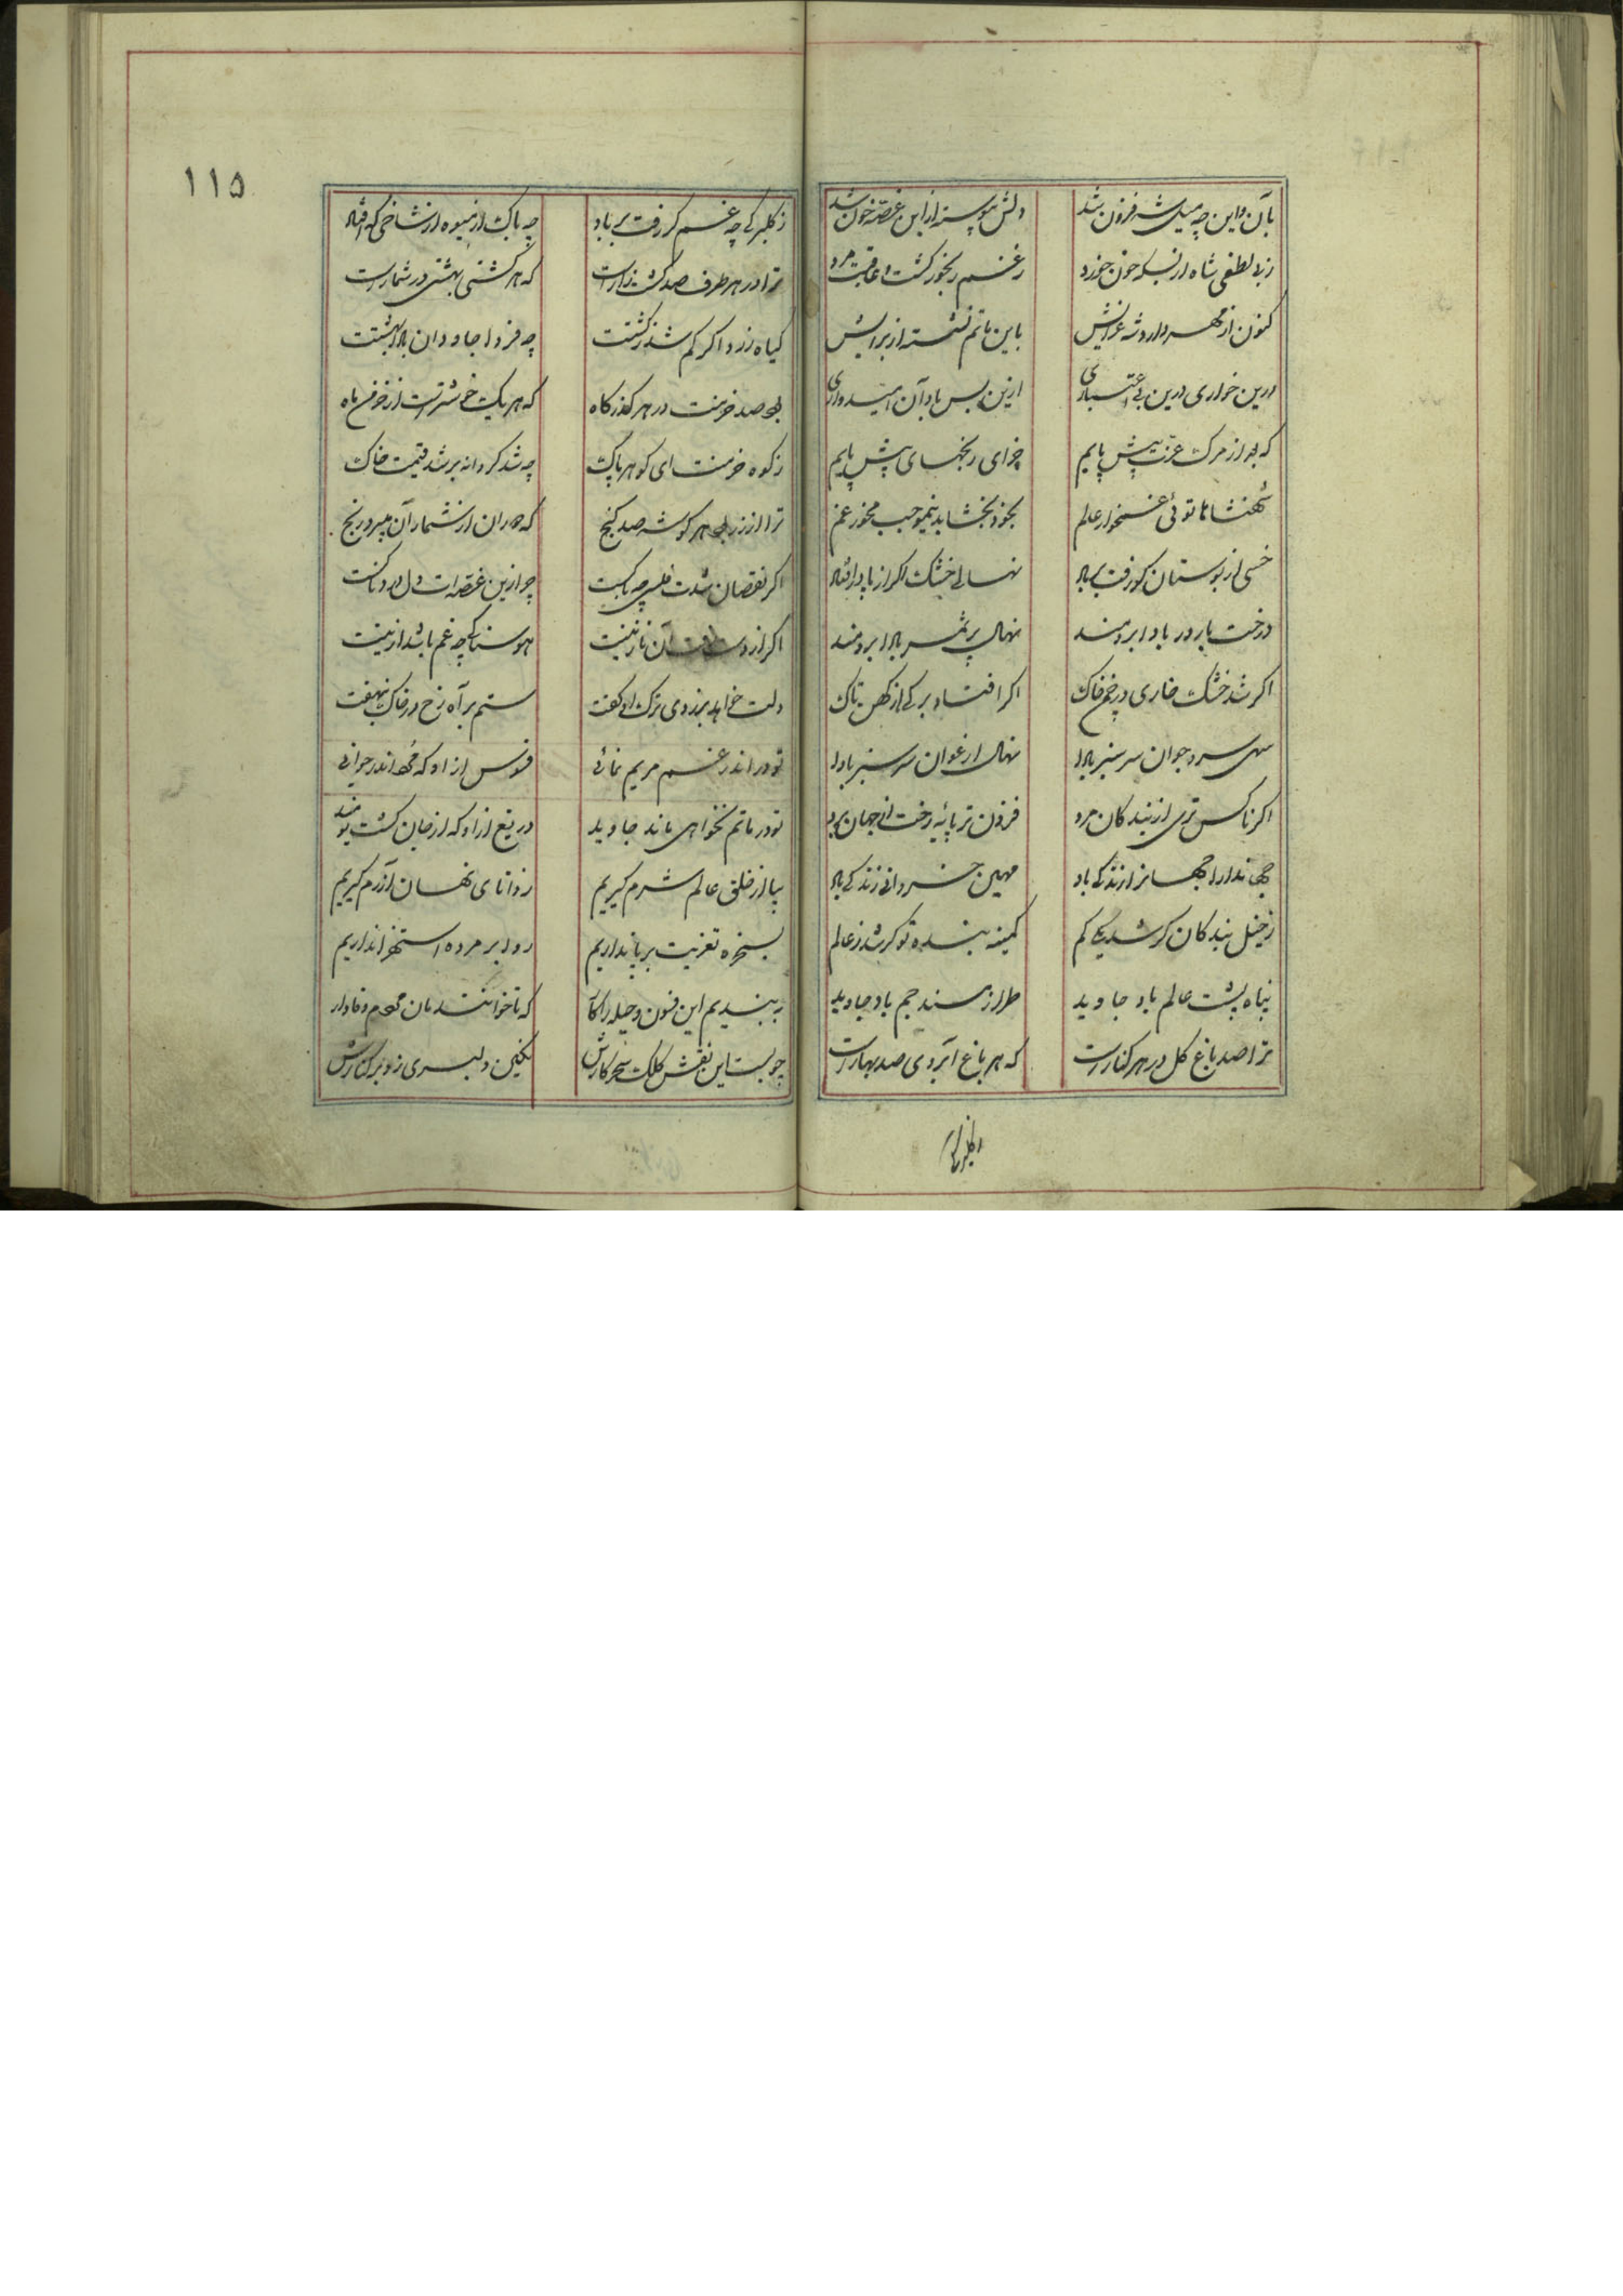 بآن و این چه میل شه فزون شد دلش پیوسته از این غصه خون شد
ز بی لطفی شاه از بسکه خون خورد ز غم رنجور گشت و عاقبت مرد
کنون از مهر دارد شه عزایش باین ماتم نشسته از برایش
درین خواری درین بی اعتباری ازین پس باد آن امیدواری
که بود از مرگ عزت پیش پایم چرا ای رنجهای پیش پایم
شهنشاها توئی غمخوار عالم بخود بخشا بدینموجب مخور غم
خسی از بوستان کو رفت برباد نهالی خشک اگر از پا درافتاد
درخت بارور بادا برومند نهال پرثمر بادا برومند
اگر شد خشک خاری در خم خاک اگر افتاد برگی از کهن تاک
سهی سرو جوان سرسبز بادا نهال ارغوان سرسبز بادا
اگر ناکس تری از بندگان مرد فزون تر پایه رخت از جهان برد
جهاندارا جهانرا زندگی باد مهین خسروانی زندگی باد
ز خیل بندگان گر شد یکی کم کمینه بنده تو گر شد ز عالم
پناه پشت عالم باد جاوید طراز مسند جم باد جاوید
ترا صد باغ گل در هر کنارست که هر باغ آبروی صد بهارست
ز گلبرگی
۱۱۵
ز گلبرگی چه غم گر رفت بر باد چه باک از میوه از شاخی که افتاد
ترا در هر طرف صد کشت زارست که هر کشتی بهشتی در شمارست
گیاه زرد اگر کم شد ز کشتت چه فردا جاودان بادا بهشتت
بود صد خرمنت در هر گذرگاه که هر یک خوشترست از خرمن ماه
ز کوه خرمنت ای گوهر پاک چه شد گر دانه بر شد قیمت خاک
ترا از زر بود هر گوشه صد گنج که دوران از شمار آن برد رنج
اگر نقصان شدت فلسی چه باکست چرا زین غصه ات دل دردناکست
اگر از دست رفت آن نازنینت هوسناکی چه غم باشد ازینت
دلت خواهد بزودی ترک او گفت ستم بر آه رخ در خاک بنهفت
تو در اندر غم مریم نمائی فسوس از او که مرد اندر جوانی
تو در ماتم نخواهی ماند جاوید دریغ از او که از جان گشت نومید
بیا از خلق عالم شرم گیریم ز دانای نهان آزرم گیریم
بسخره تعزیت بر پا نداریم روا بر مرده استهزا نداریم
ببندیم این فسون و حیله را کار که تا خوانندمان مردم وفادار
چو بست این نقش کلک سحرکارش نگین دلبری زد بر کنارش